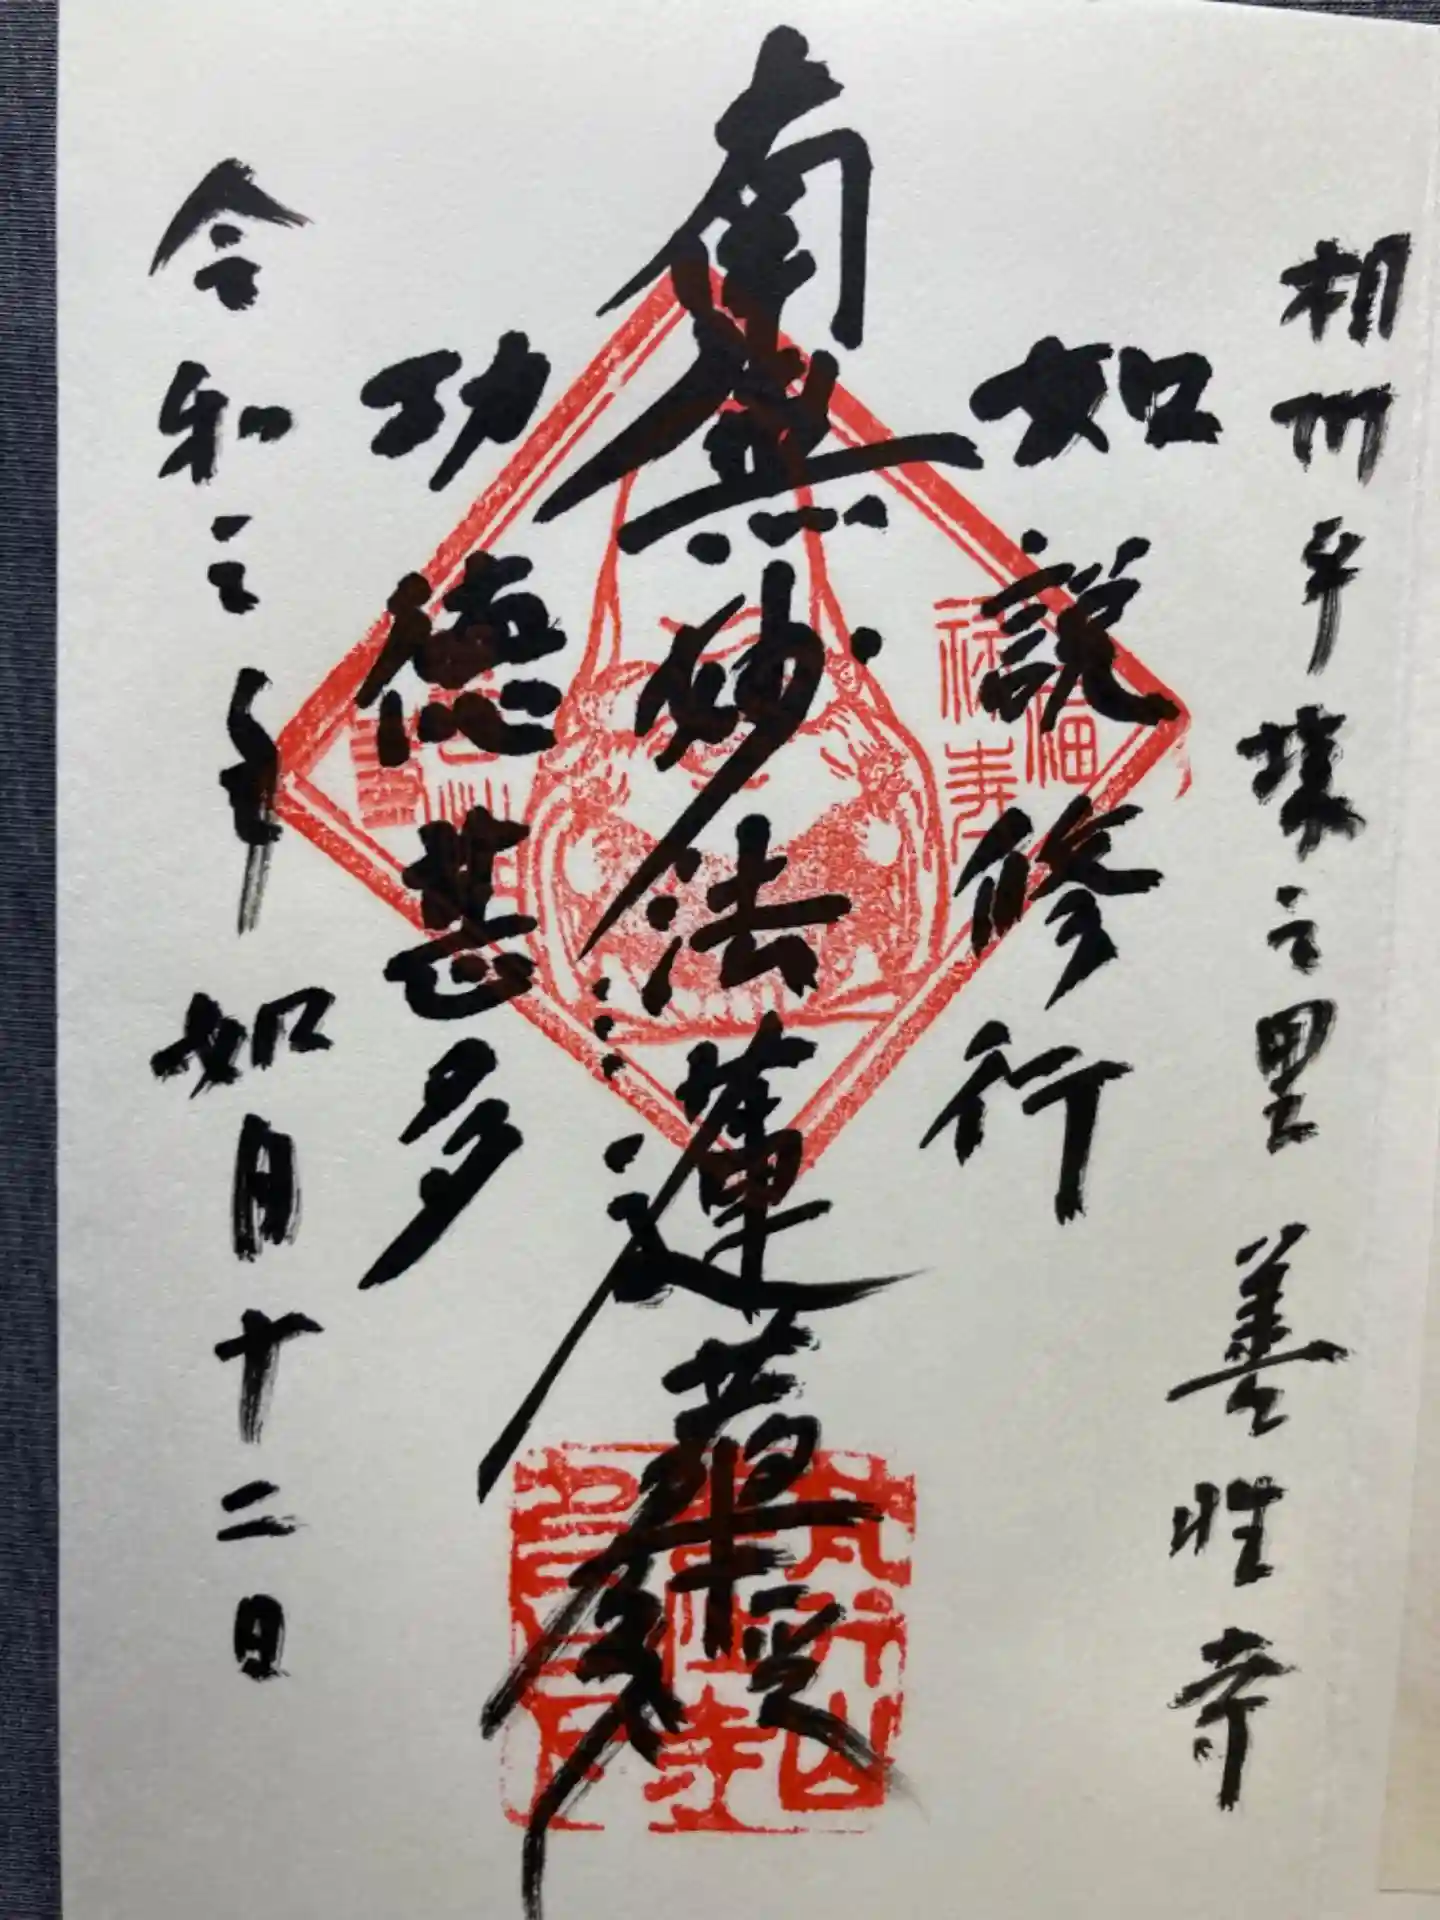 相州平塚之里 善性寺
如説修行
南無妙法蓮華経
功徳甚多
令和三年 如月十二日
福
禄寿
梵行山